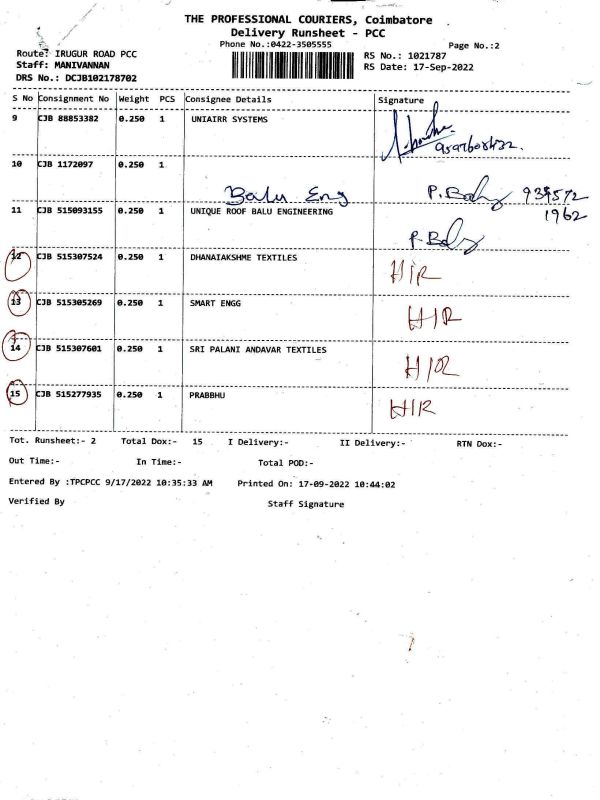 THE PROFESSIONAL COURIERS, Coimbatore
Delivery Runsheet - PCC
Phone No.:0422-3505555
Page No.:2
Route: IRUGUR ROAD PCC
Staff: MANIVANNAN
DRS No.: DCJB102178702
RS No.: 1021787
RS Date: 17-Sep-2022
S No Consignment No Weight PCS Consignee Details Signature
9 CJB 88853382 0.250 1 UNIAIRR SYSTEMS
10 CJB 1172097 0.250 1
Balu Eng P. Balu 939572
11 CJB 515093155 0.250 1 UNIQUE ROOF BALU ENGINEERING 1962
P. Balu
12 CJB 515307524 0.250 1 DHANAIAKSHME TEXTILES
HIR
13 CJB 515305269 0.250 1 SMART ENGG
HIR
14 CJB 515307601 0.250 1 SRI PALANI ANDAVAR TEXTILES
HIR
15 CJB 515277935 0.250 1 PRABBHU
HIR
Tot. Runsheet:- 2 Total Dox:- 15 I Delivery:- II Delivery:- RTN Dox:-
Out Time:- In Time:- Total POD:-
Entered By :TPCPCC 9/17/2022 10:35:33 AM Printed On: 17-09-2022 10:44:02
Verified By Staff Signature